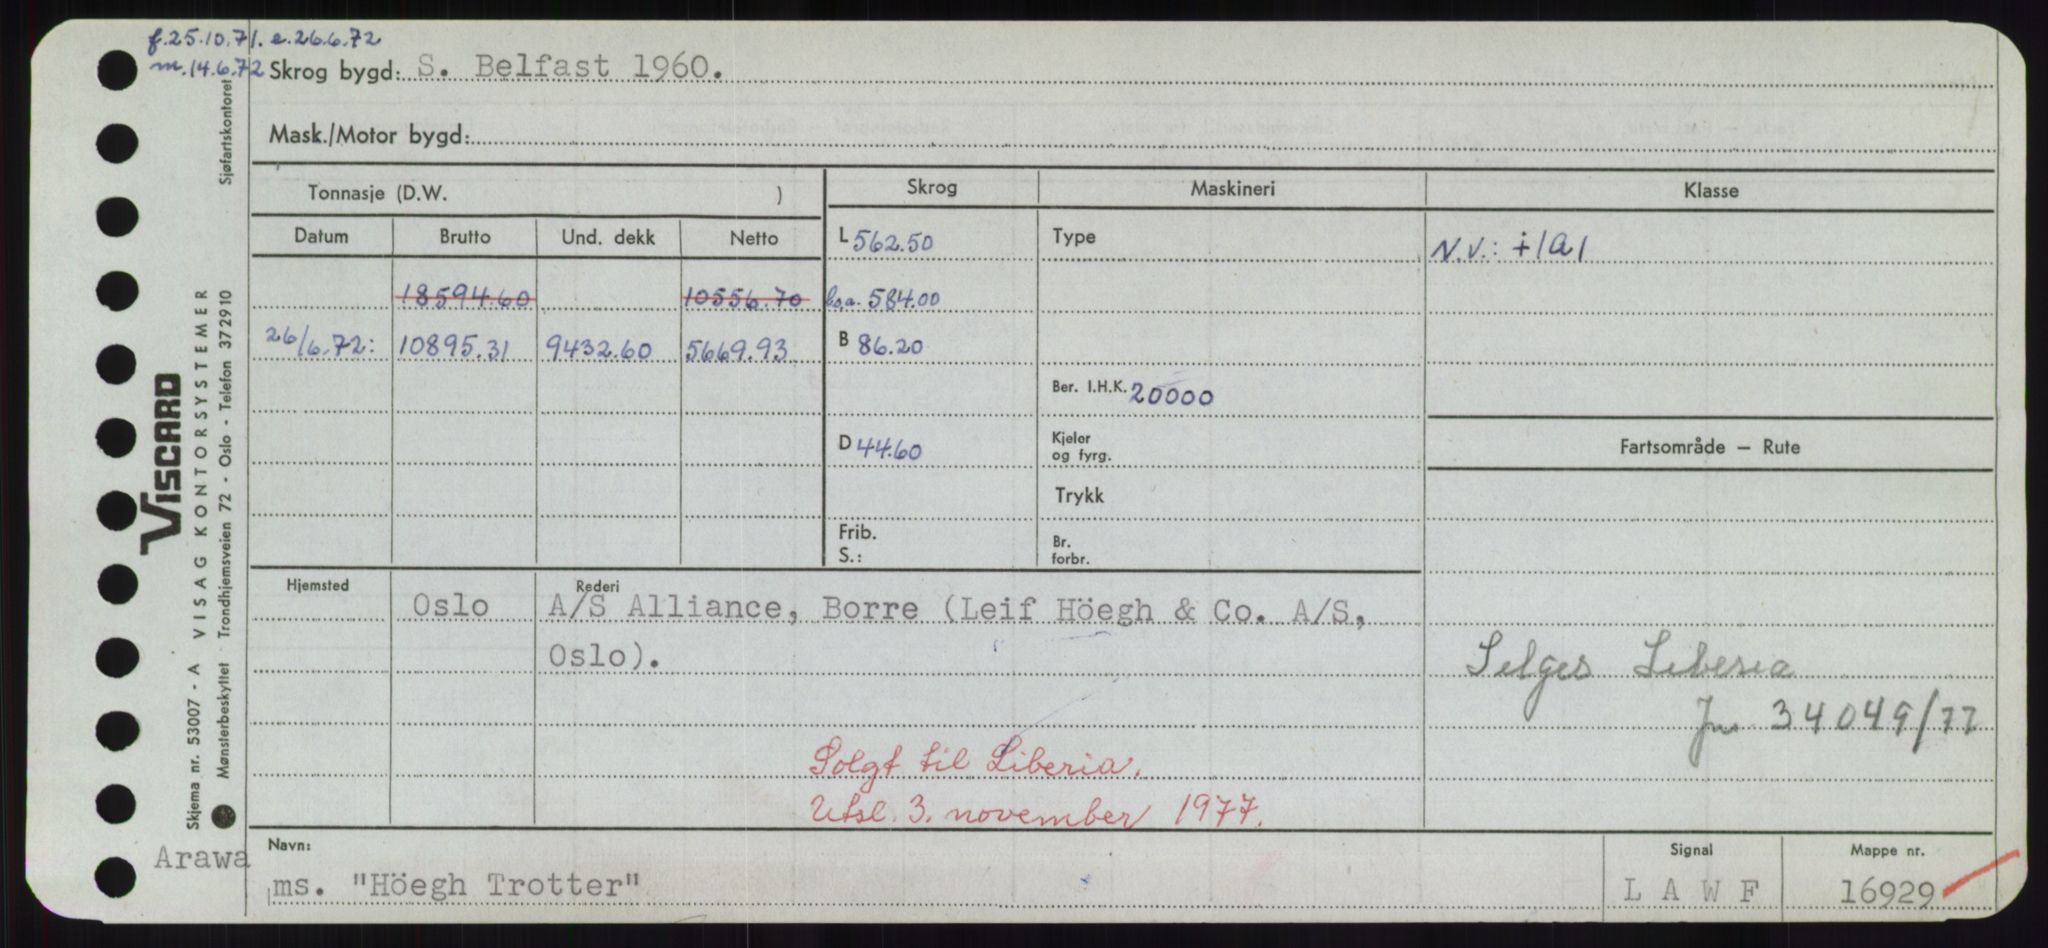 f. 25.10.71. e. 26.6.72
m. 14.6.72 Skrog bygd: S. Belfast 1960.
Mask./Motor bygd:
Tonnasje (D.W. ) Skrog Maskineri Klasse
Datum Brutto Und. dekk Netto L 562.50 Type N.V.: +1A1
18594.60 10556.70 l.o.a. 584.00
26/6.72: 10895.31 9432.60 5669.93 B 86.20
Ber. I.H.K. 20000
D 44.60 Kjeler og fyrg. Fartsområde — Rute
Trykk
Frib. S.: Br. forbr.
Hjemsted Rederi
Oslo A/S Alliance, Borre (Leif Höegh & Co. A/S,
Oslo).
Selges Liberia
Jnr 34049/77
Solgt til Liberia.
Utsl. 3. november 1977.
Arawa Navn: Signal Mappe nr.
ms. "Höegh Trotter" L A W F 16929
Sjøfartskontoret
VISCARD
VISAG KONTORSYSTEMER
Trondhjemsveien 72 - Oslo - Telefon 372910
Skjema nr. 53007 - A
Mønsterbeskyttet